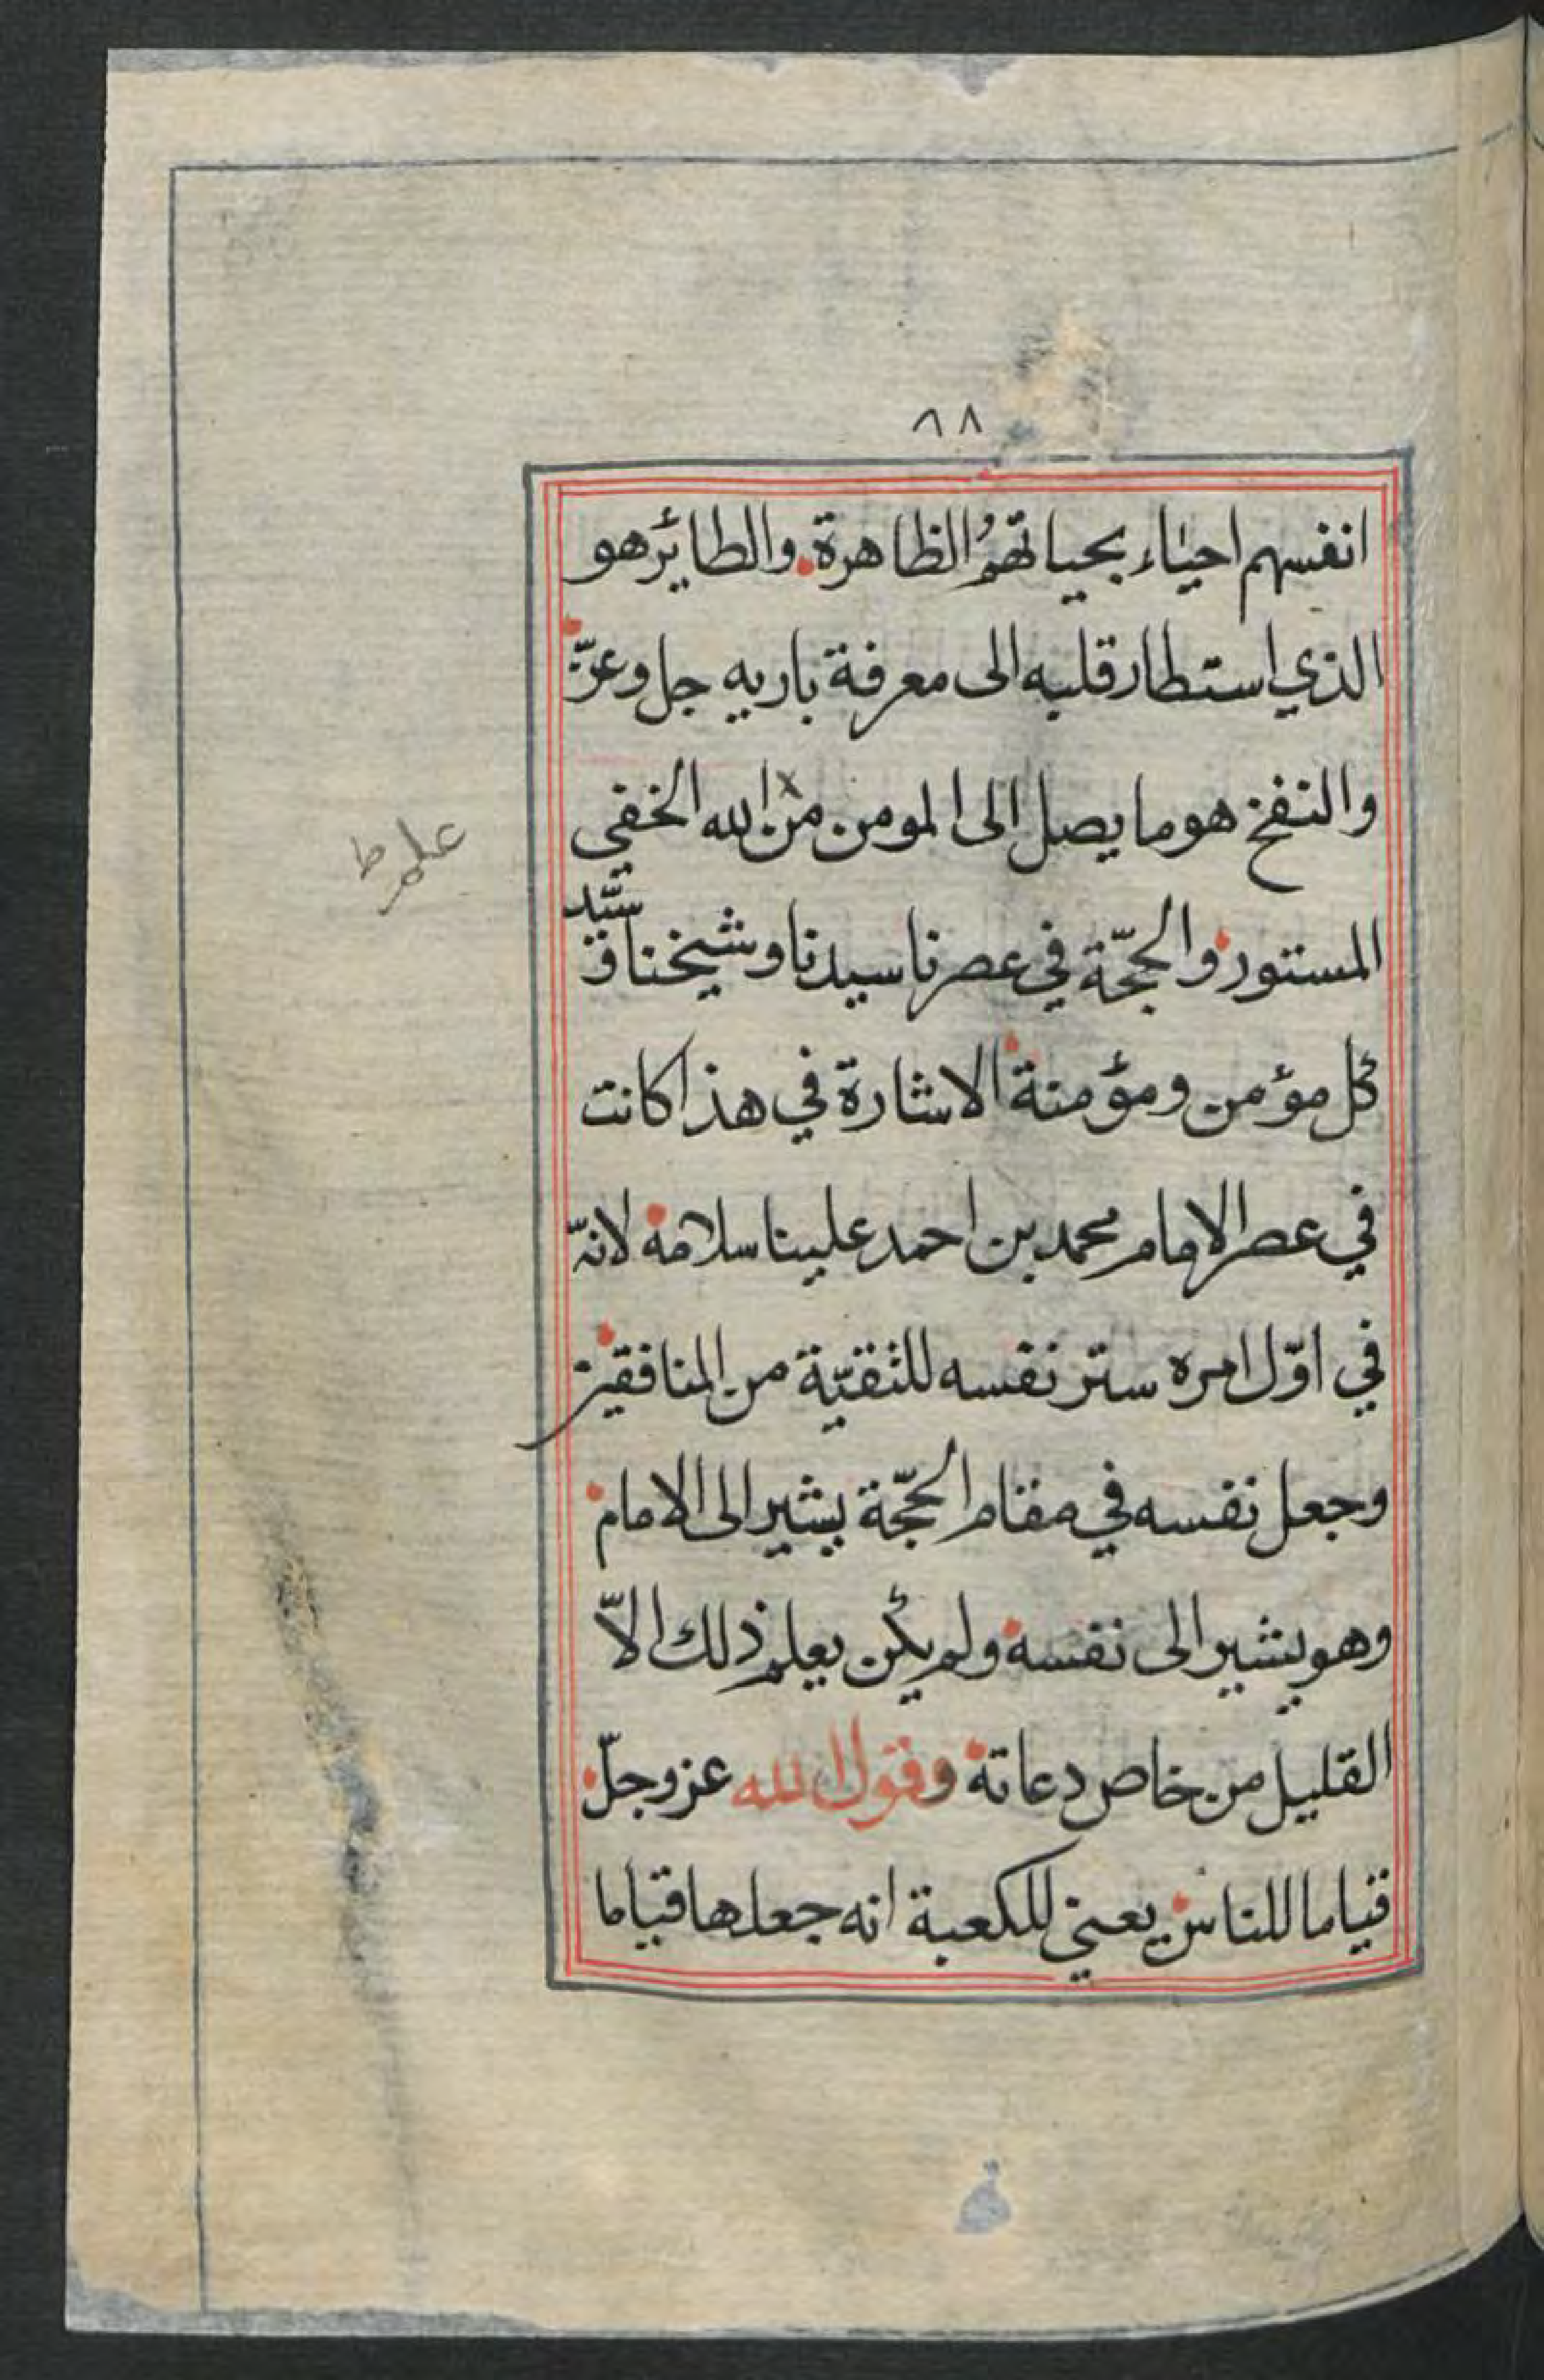 ٨٨
انفسهم احياء بحياتهم الظاهرة. والطائر هو
الذي استطار قلبه الى معرفة باريه جل وعزّ
والنفخ هو ما يصل الى المومن من الله الخفي
علم ط
المستور والحجّة في عصرنا سيدنا وشيخنا وسيّد
كل مؤمن ومؤمنة الاشارة في هذا كانت
في عصر الامام محمد بن احمد علينا سلامه لانّه
في اوّل امره ستر نفسه للتقيّة من المنافقين
وجعل نفسه في مقام الحجّة يشير الى الامام
وهو يشير الى نفسه ولم يكن يعلم ذلك الّا
القليل من خاص دعاته وقول الله عز وجلّ
قياما للناس يعني للكعبة انه جعلها قياما